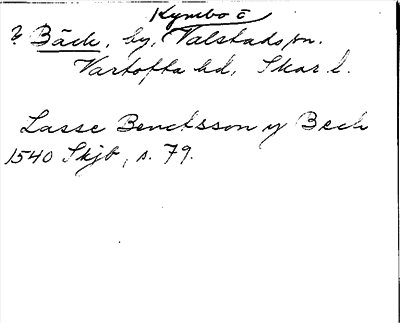 Kymbo ē
? Bäck, by, Valstads sn.
Vartofta hd, Skar. l.
Lasse Benctsson y Bech
1540 Skjb, s. 79.